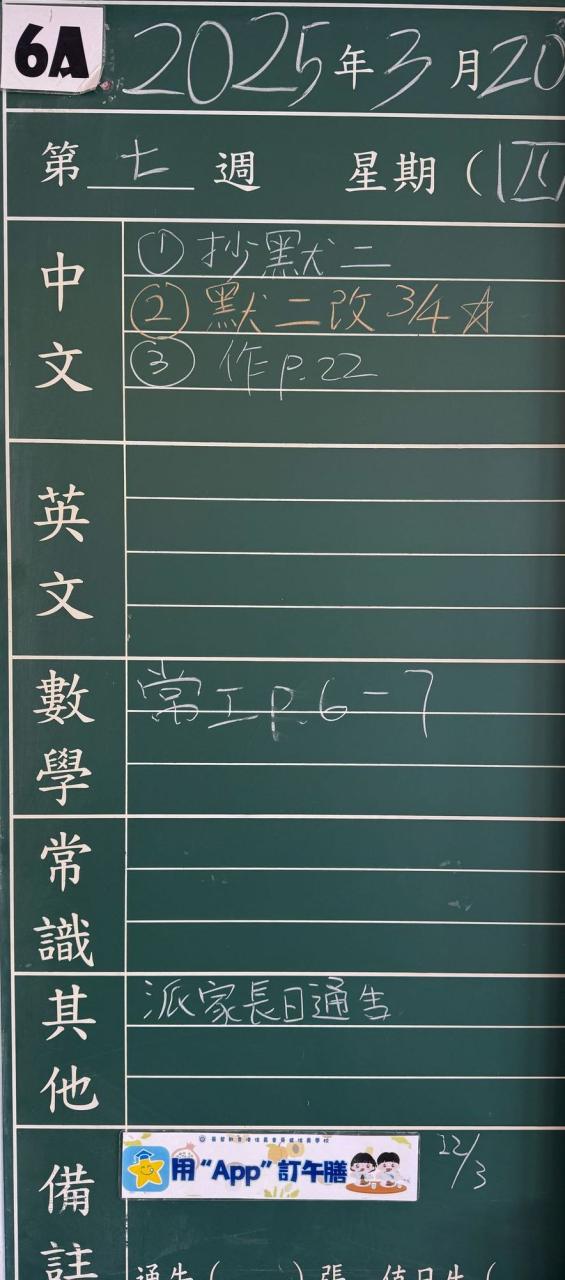 6A
2025年3月20
第七週 星期(四
中文
① 抄默二
② 默二改 3/4 ☆
③ 作 P.22
英文
數學
常工 P.6-7
常識
其他
派家長日通告
備註
用“App”訂午膳
12/3
通告( )張 值日生(